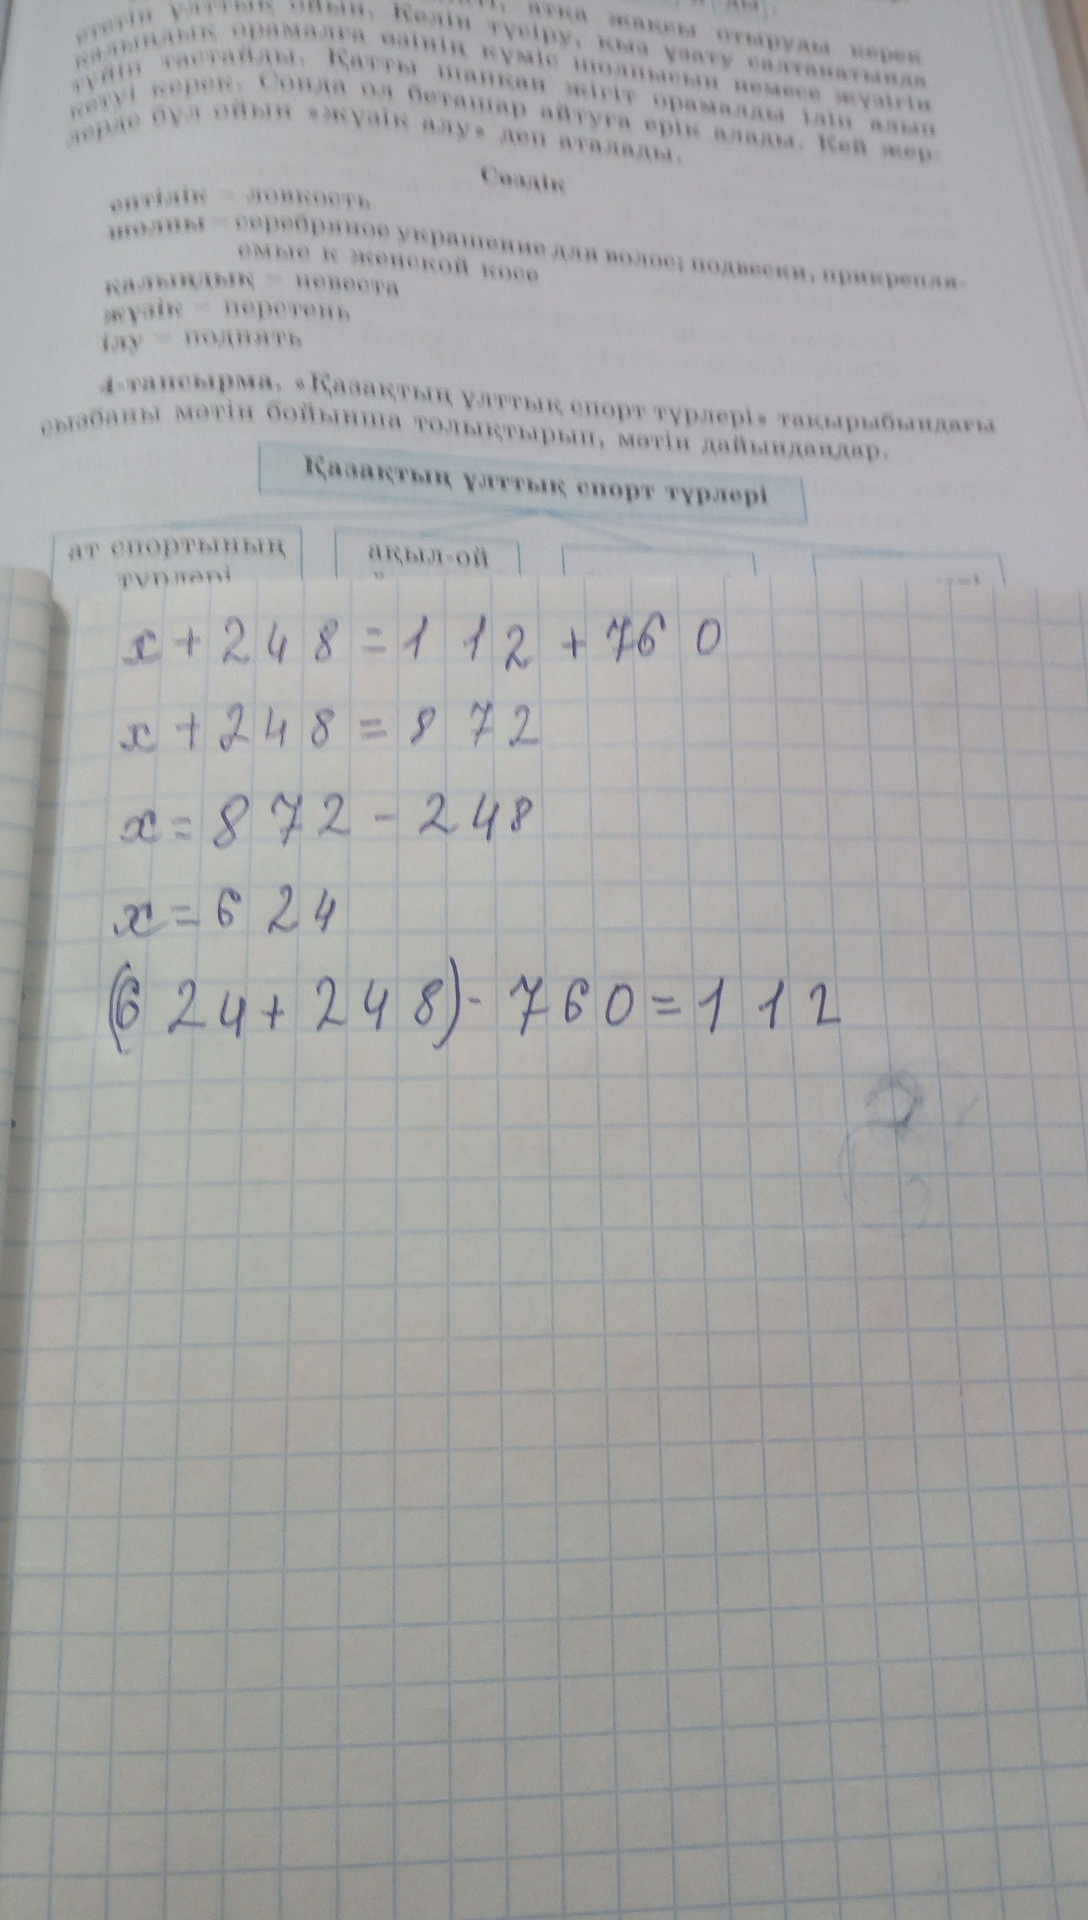 , атқа жақсы отыруды керек
ететін ұлттық ойын. Келін түсіру, қыз ұзату салтанатында
қалыңдық орамалға өзінің күміс шолпысын немесе жүзігін
түйіп тастайды. Қатты шапқан жігіт орамалды іліп алып
кетуі керек. Сонда ол беташар айтуға ерік алады. Кей жер-
лерде бұл ойын «жүзік алу» деп аталады.
Сөздік
ептілік – ловкость
шолпы – серебряное украшение для волос; подвески, прикрепля-
емые к женской косе
қалыңдық – невеста
жүзік – перстень
ілу – поднять
4-тапсырма. «Қазақтың ұлттық спорт түрлері» тақырыбындағы
сызбаны мәтін бойынша толықтырып, мәтін дайындаңдар.
Қазақтың ұлттық спорт түрлері
ат спортының
түрлері
ақыл-ой
x+248=112+760
x+248=872
x=872-248
x=624
(624+248)-760=112